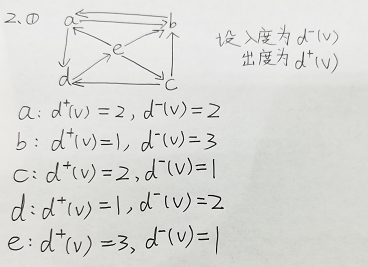 2、①
a b
设入度为 d⁻(v)
e
出度为 d⁺(v)
d c
a: d⁺(v) = 2, d⁻(v) = 2
b: d⁺(v) = 1, d⁻(v) = 3
c: d⁺(v) = 2, d⁻(v) = 1
d: d⁺(v) = 1, d⁻(v) = 2
e: d⁺(v) = 3, d⁻(v) = 1